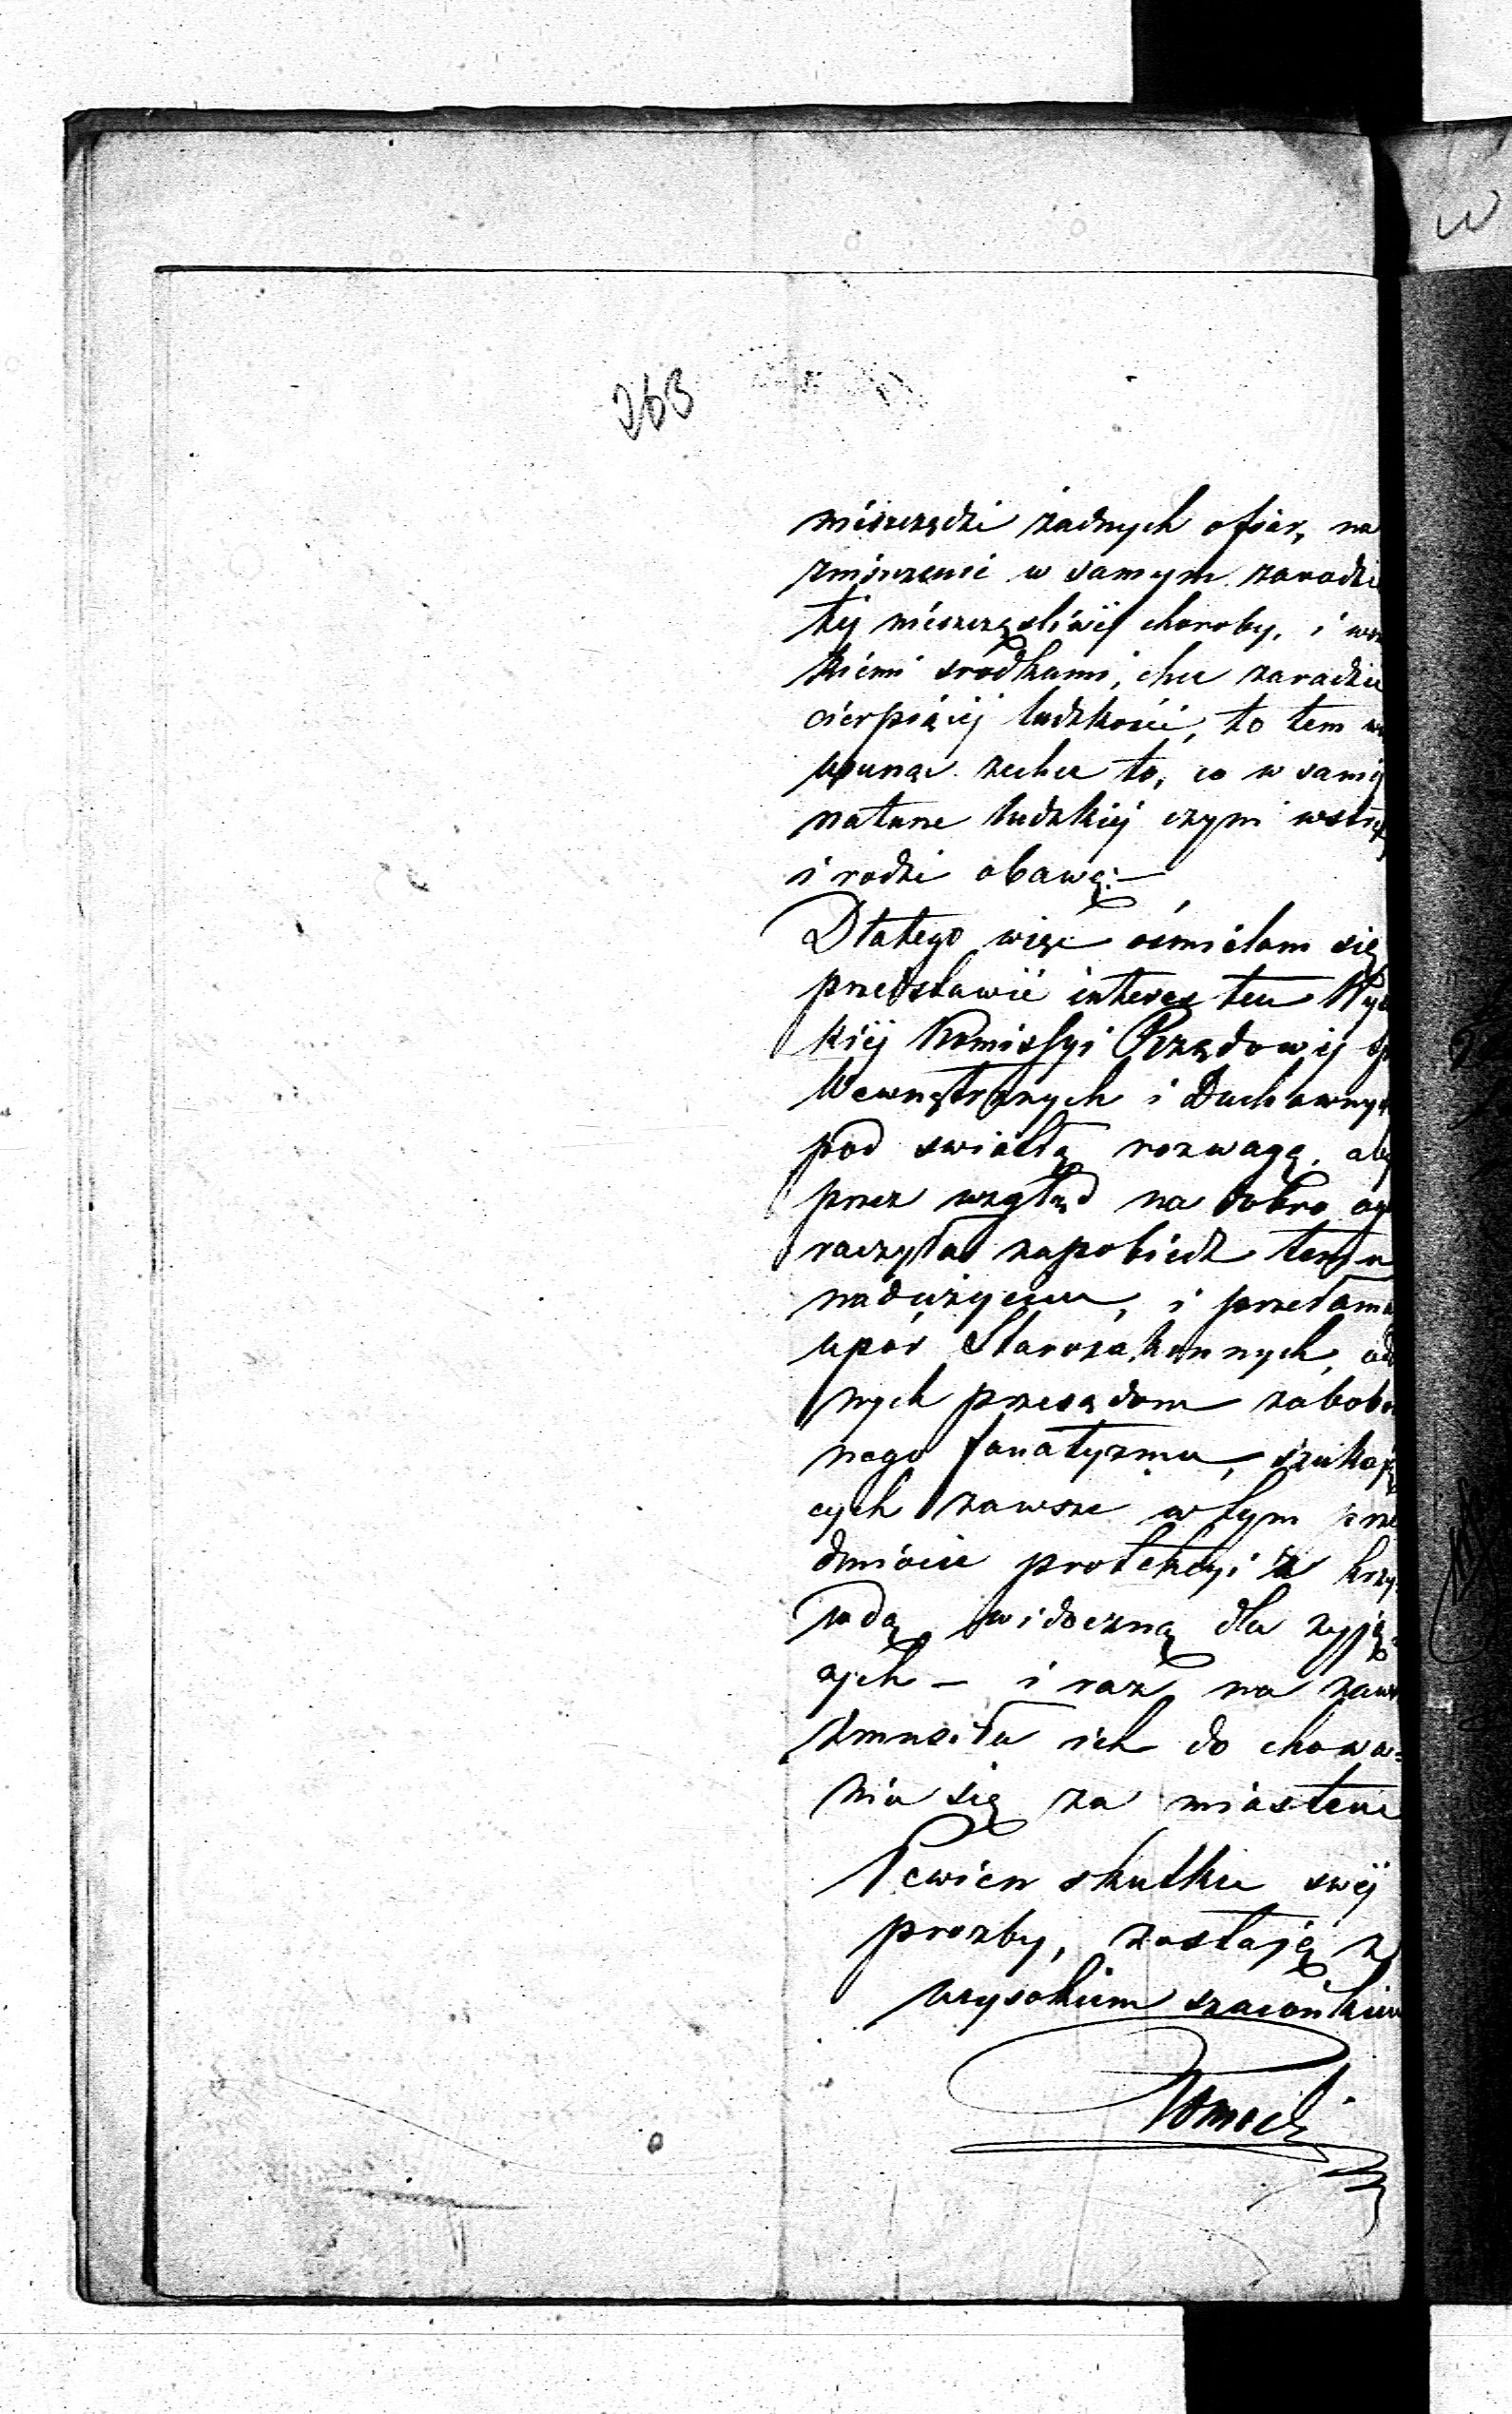 263
nieszczędzi żadnych ofiar, na
zniszczenie w samym zarodzie
tej nieszczęśliwéj choroby, i wsz
kiemi srodkami, chce zaradzić
cierpiącej ludzkości, to tem
usunąc zechce to, co w saméj
naturze ludzkiéj czyni wstręt
i rodzi obawę. —
Dlatego więc ośmielam się
przedstawić interes ten Wyso
kiéj Kommissyi Rządowéj Sp
Wewnętrznych i Duchownych
pod swiatłą rozwagę, aby
przez wzgląd na dobro ogó
raczyła zapobiedz temu
nadużyciu, i przełama
upór Starozakonnych, odd
nych przesądom zabobon
nego fanatyzmu, szukają
cych zawsze w tym prze
dmiocie protekcyi z krzy=
wdą widoczną dla żyją=
cych — i raz na zaws
zmusiła ich do chowa=
nia się za miastem
Pewien skutku swéj
prozby, zostaję z
wysokiem szacunkiem